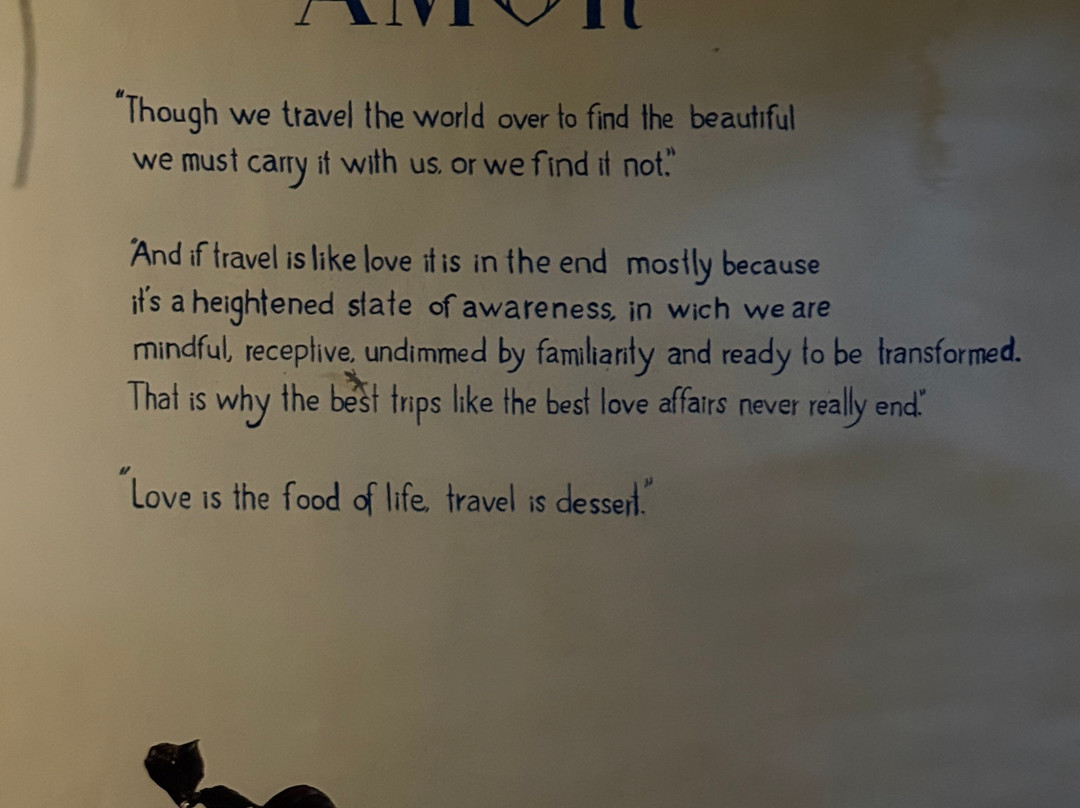 AMOR
"Though we travel the world over to find the beautiful
we must carry it with us, or we find it not."
"And if travel is like love it is in the end mostly because
it's a heightened state of awareness, in wich we are
mindful, receptive, undimmed by familiarity and ready to be transformed.
That is why the best trips like the best love affairs never really end."
"Love is the food of life, travel is dessert."